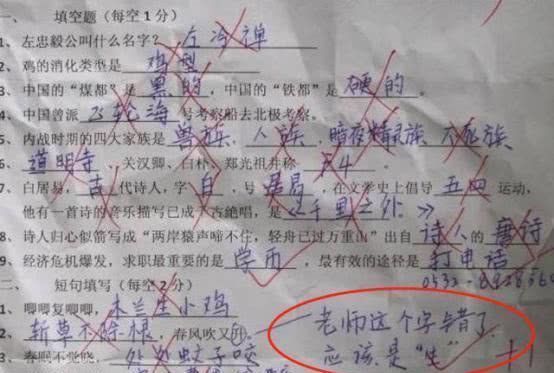 一、 填空题（每空1分）
1、左忠毅公叫什么名字？ 左冷禅
2、鸡的消化类型是 鸡型
3、中国的“煤都”是 黑的 ，中国的“铁都”是 硬的 。
4、中国曾派 飞轮海 号考察船去北极考察。
5、内战时期的四大家族是 兽族、人族、暗夜精灵族、不死族
6、 道明寺 、关汉卿、白朴、郑光祖并称 F4 。
7、白居易， 古 代诗人，字 白 ，号 居易 ，在文学史上倡导 五四 运动，
他有一首诗的音乐描写已成千古绝唱，是 《千里之外》
8、诗人归心似箭写成“两岸猿声啼不住，轻舟已过万重山”出自 诗人 的 唐诗
9、经济危机爆发，求职最重要的是 学历 ，最有效的途径是 打电话
二、 短句填写（每空2分）
1、唧唧复唧唧， 木兰生小鸡
2、 斩草不除根 ，春风吹又 老师这个字错了
3、春眠不觉晓， 处处蚊子咬 应该是“生” +1